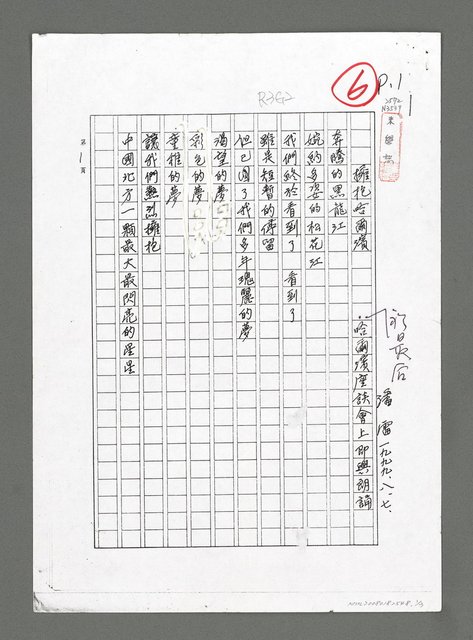 擁抱哈爾濱
:哈爾濱座談會上即興朗誦
潘雷 一九九九.八.七.
奔騰的黑龍江
婉約多姿的松花江
我們終於看到了 看到了
雖是短暫的停留
但已圓了我們多年瑰麗的夢
渴望的夢
彩色的夢
重推的夢
讓我們熱烈擁抱
中國北方一顆最大最閃亮的星星
第1頁
6
P.1
R3G2